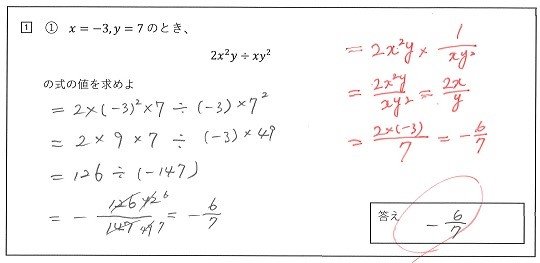 1 ① x = −3, y = 7 のとき、
2x²y ÷ xy²
の式の値を求めよ
= 2×(-3)²×7 ÷ (-3)×7²
= 2 × 9 × 7 ÷ (-3)×49
= 126 ÷ (-147)
= - 126 42 6 / 147 49 7 = - 6/7
= 2x²y × 1/xy²
= 2x²y/xy² = 2x/y
= 2×(-3)/7 = - 6/7
答え
- 6/7